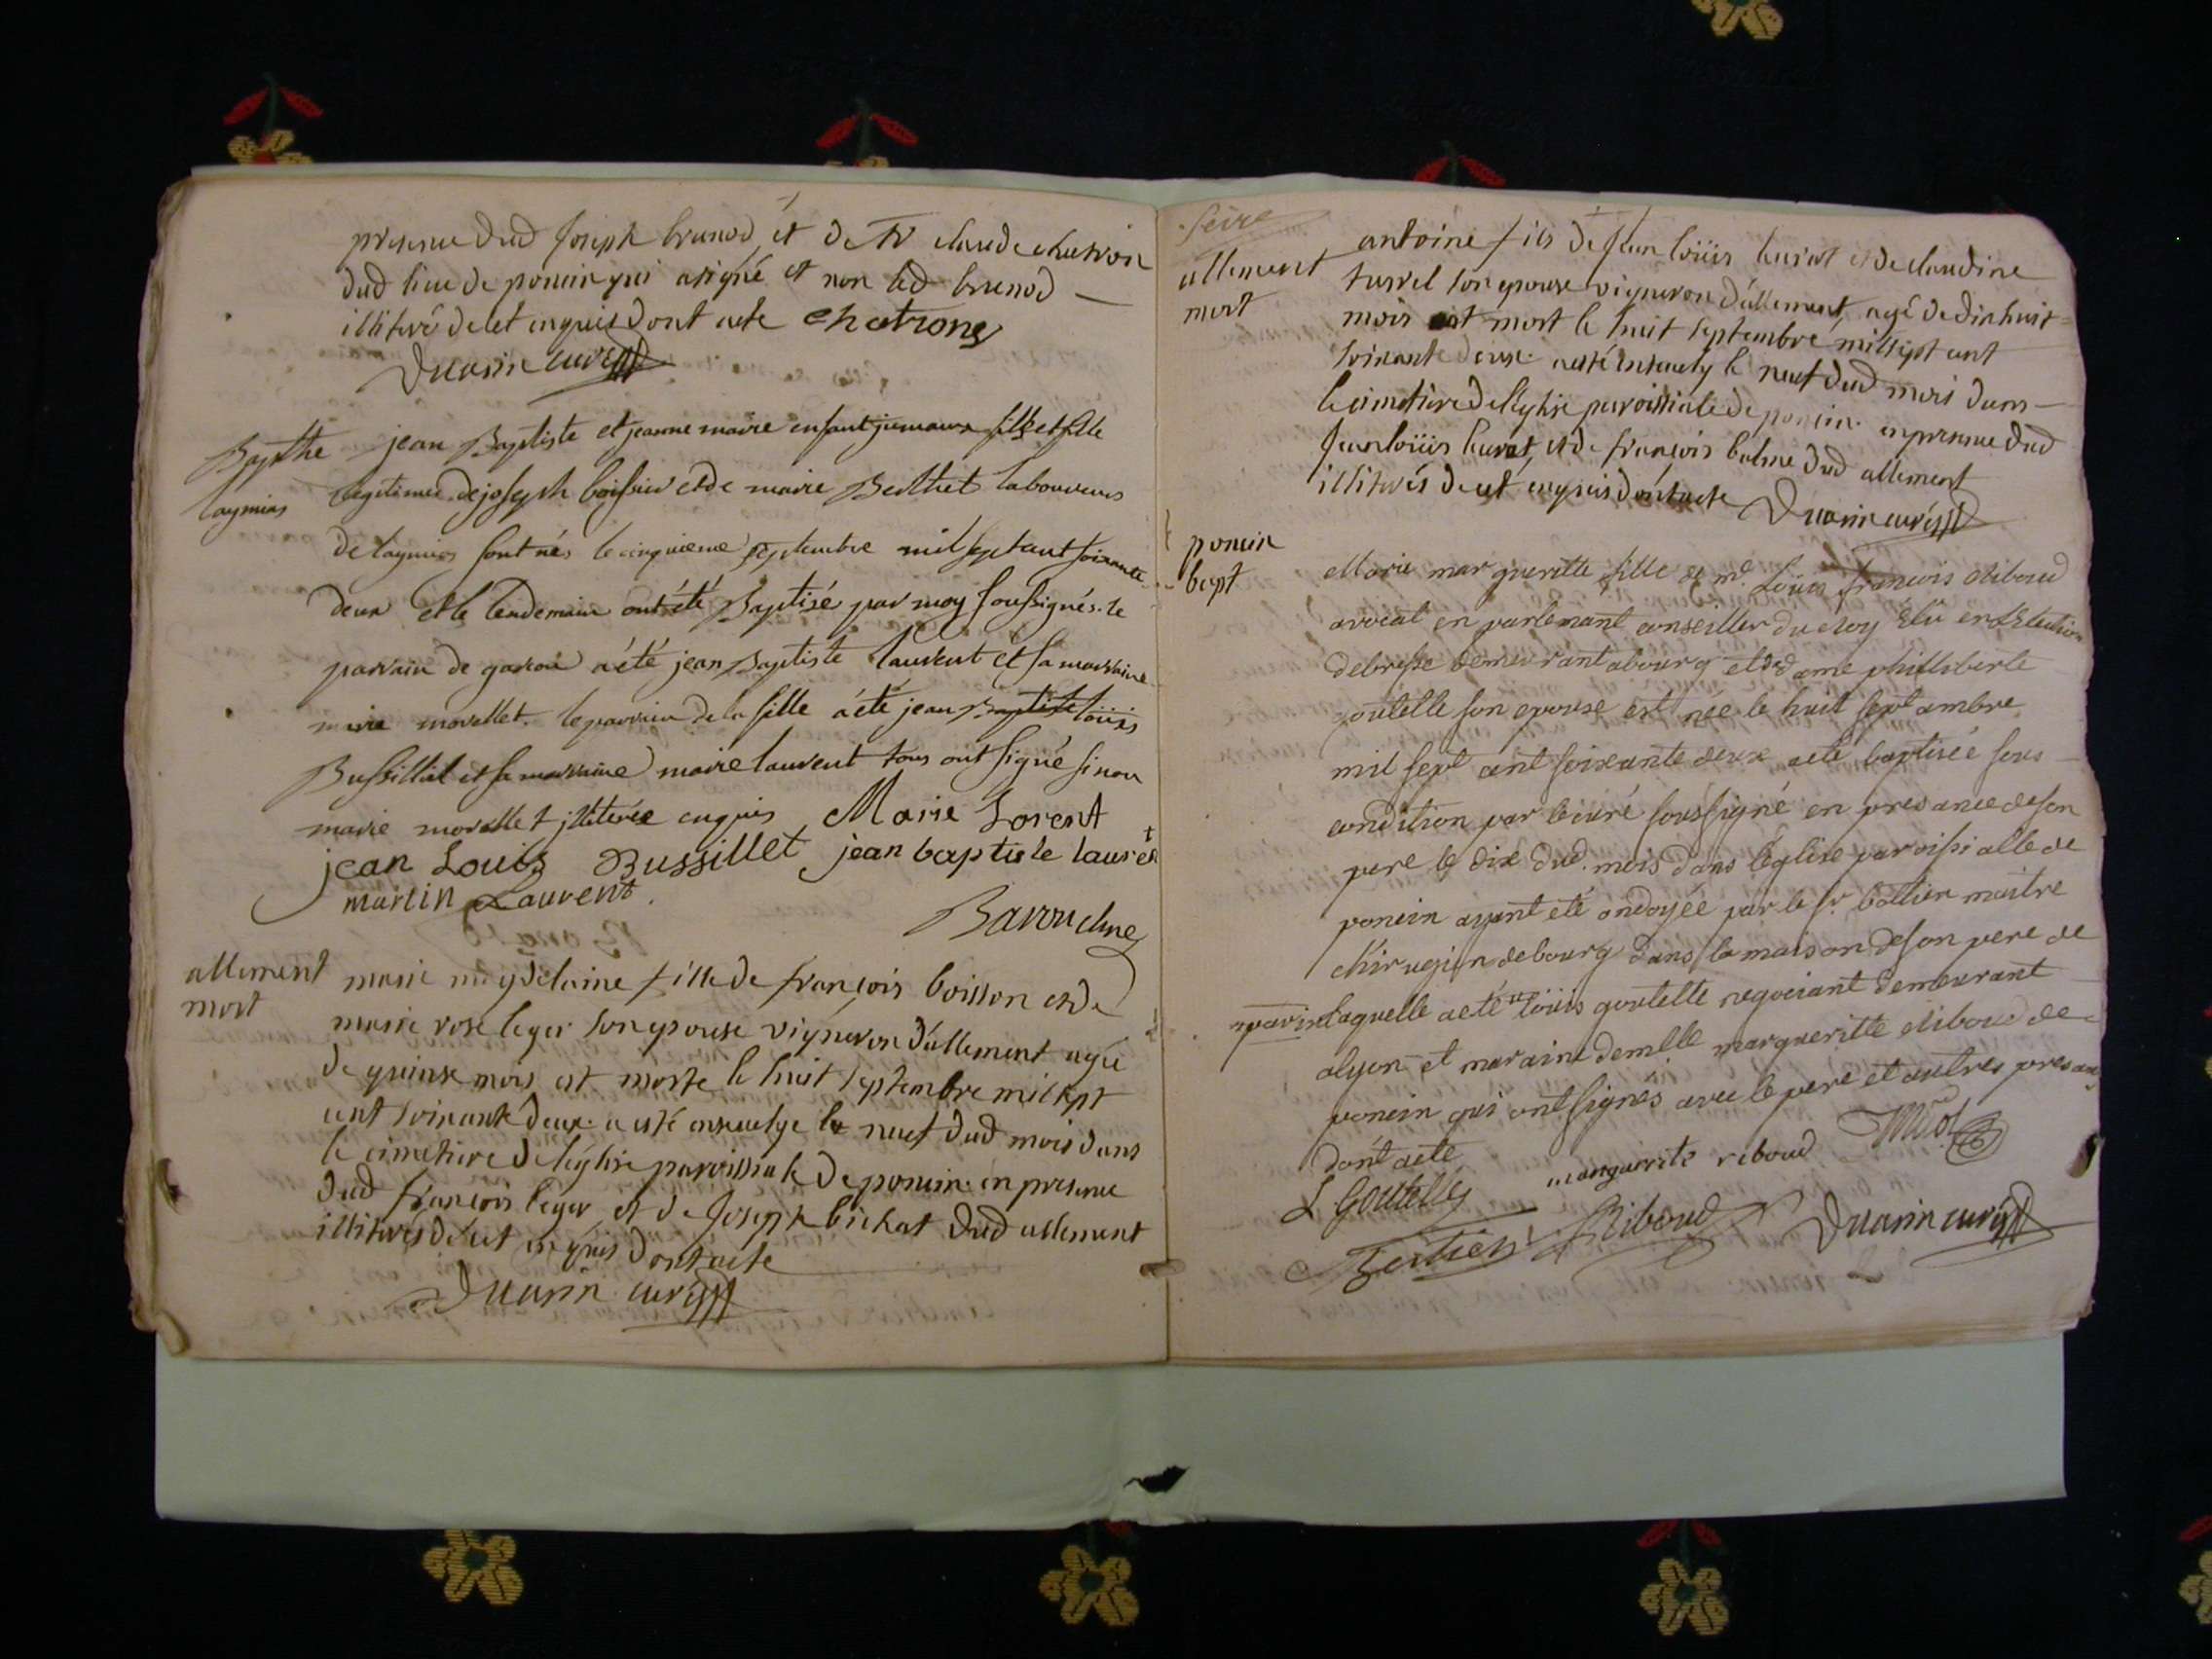 presence dud Joseph brunod, et de Sr claude chatron
dud lieu de poncin qui a signé et non led brunod
illitéré de cet enquis dont acte Chatrong
Duarin curé
Bapthe
laymias
jean Baptiste et jeanne marie enfant jumaux fils et fille
legitimes de joseph boissiés et de marie Berthet laboureurs
de laymias sont nés le cinquieme septembre mil sept cent soixante
deux et le lendemain ont été Baptisé par moy soussignés. le
parrain de garcon a été jean Baptiste laurent et sa marraine
marie morellet. le parrain de la fille a été jean Baptiste loüis
Bussillet et sa marraine marie laurent tous ont signé sinon
marie morellet illiterée enquis Marie Lorent
jean Louis Bussillet jean baptiste laurent
martin Laurent
Baroudine
allement
mort
marie magdelaine fille de françois boisson et de
marie rose leger son epouse vigneron d'allement agée
de quinse mois est morte le huit septembre mil sept
cent soixante deux. a esté ensevelye le neuf dud mois dans
le cimetiere de l'eglise paroissiale de poncin. en presence
dud françois leger et de Joseph bichat dud allement
illiterés de cet enquis dont acte
Duarin curé
allement
mort
antoine fils de Jean loüis curat et de claudine
turrel son epouse vigneron d'allement, agé de dixhuit
mois est mort le huit septembre mil sept cent
soixante deux. a esté ensevely le neuf dud mois dans
le cimetiere de l'eglise paroissiale de poncin. en presence dud
Jean loüis curat, et de françois balme dud allement
illiterés de cet enquis dont acte Duarin curé
poncin
bapt
Marie margueritte fille de me Loüis françois Riboud
avocat en parlemant conseiller du Roy Elû en l'Election
de bresse demeurant a bourg et de dame philliberte
goutelle son epouse est née le huit septambre
mil sept cent soixante deux a eté baptisée sous
condition par le curé soussigné en presance de son
pere le dix dud. mois dans l'eglise paroissialle de
poncin ayant eté ondoyée par le sr bottier maitre
chirugien de bourg dans la maison de son pere de
laquelle a eté loüis goutelle negociant demeurant
a lyon et maraine demlle margueritte Riboud de
poncin qui ont signés avec le pere et autres presans
dont acte
L Goutelle marguerite riboud
Riboud Duarin curé